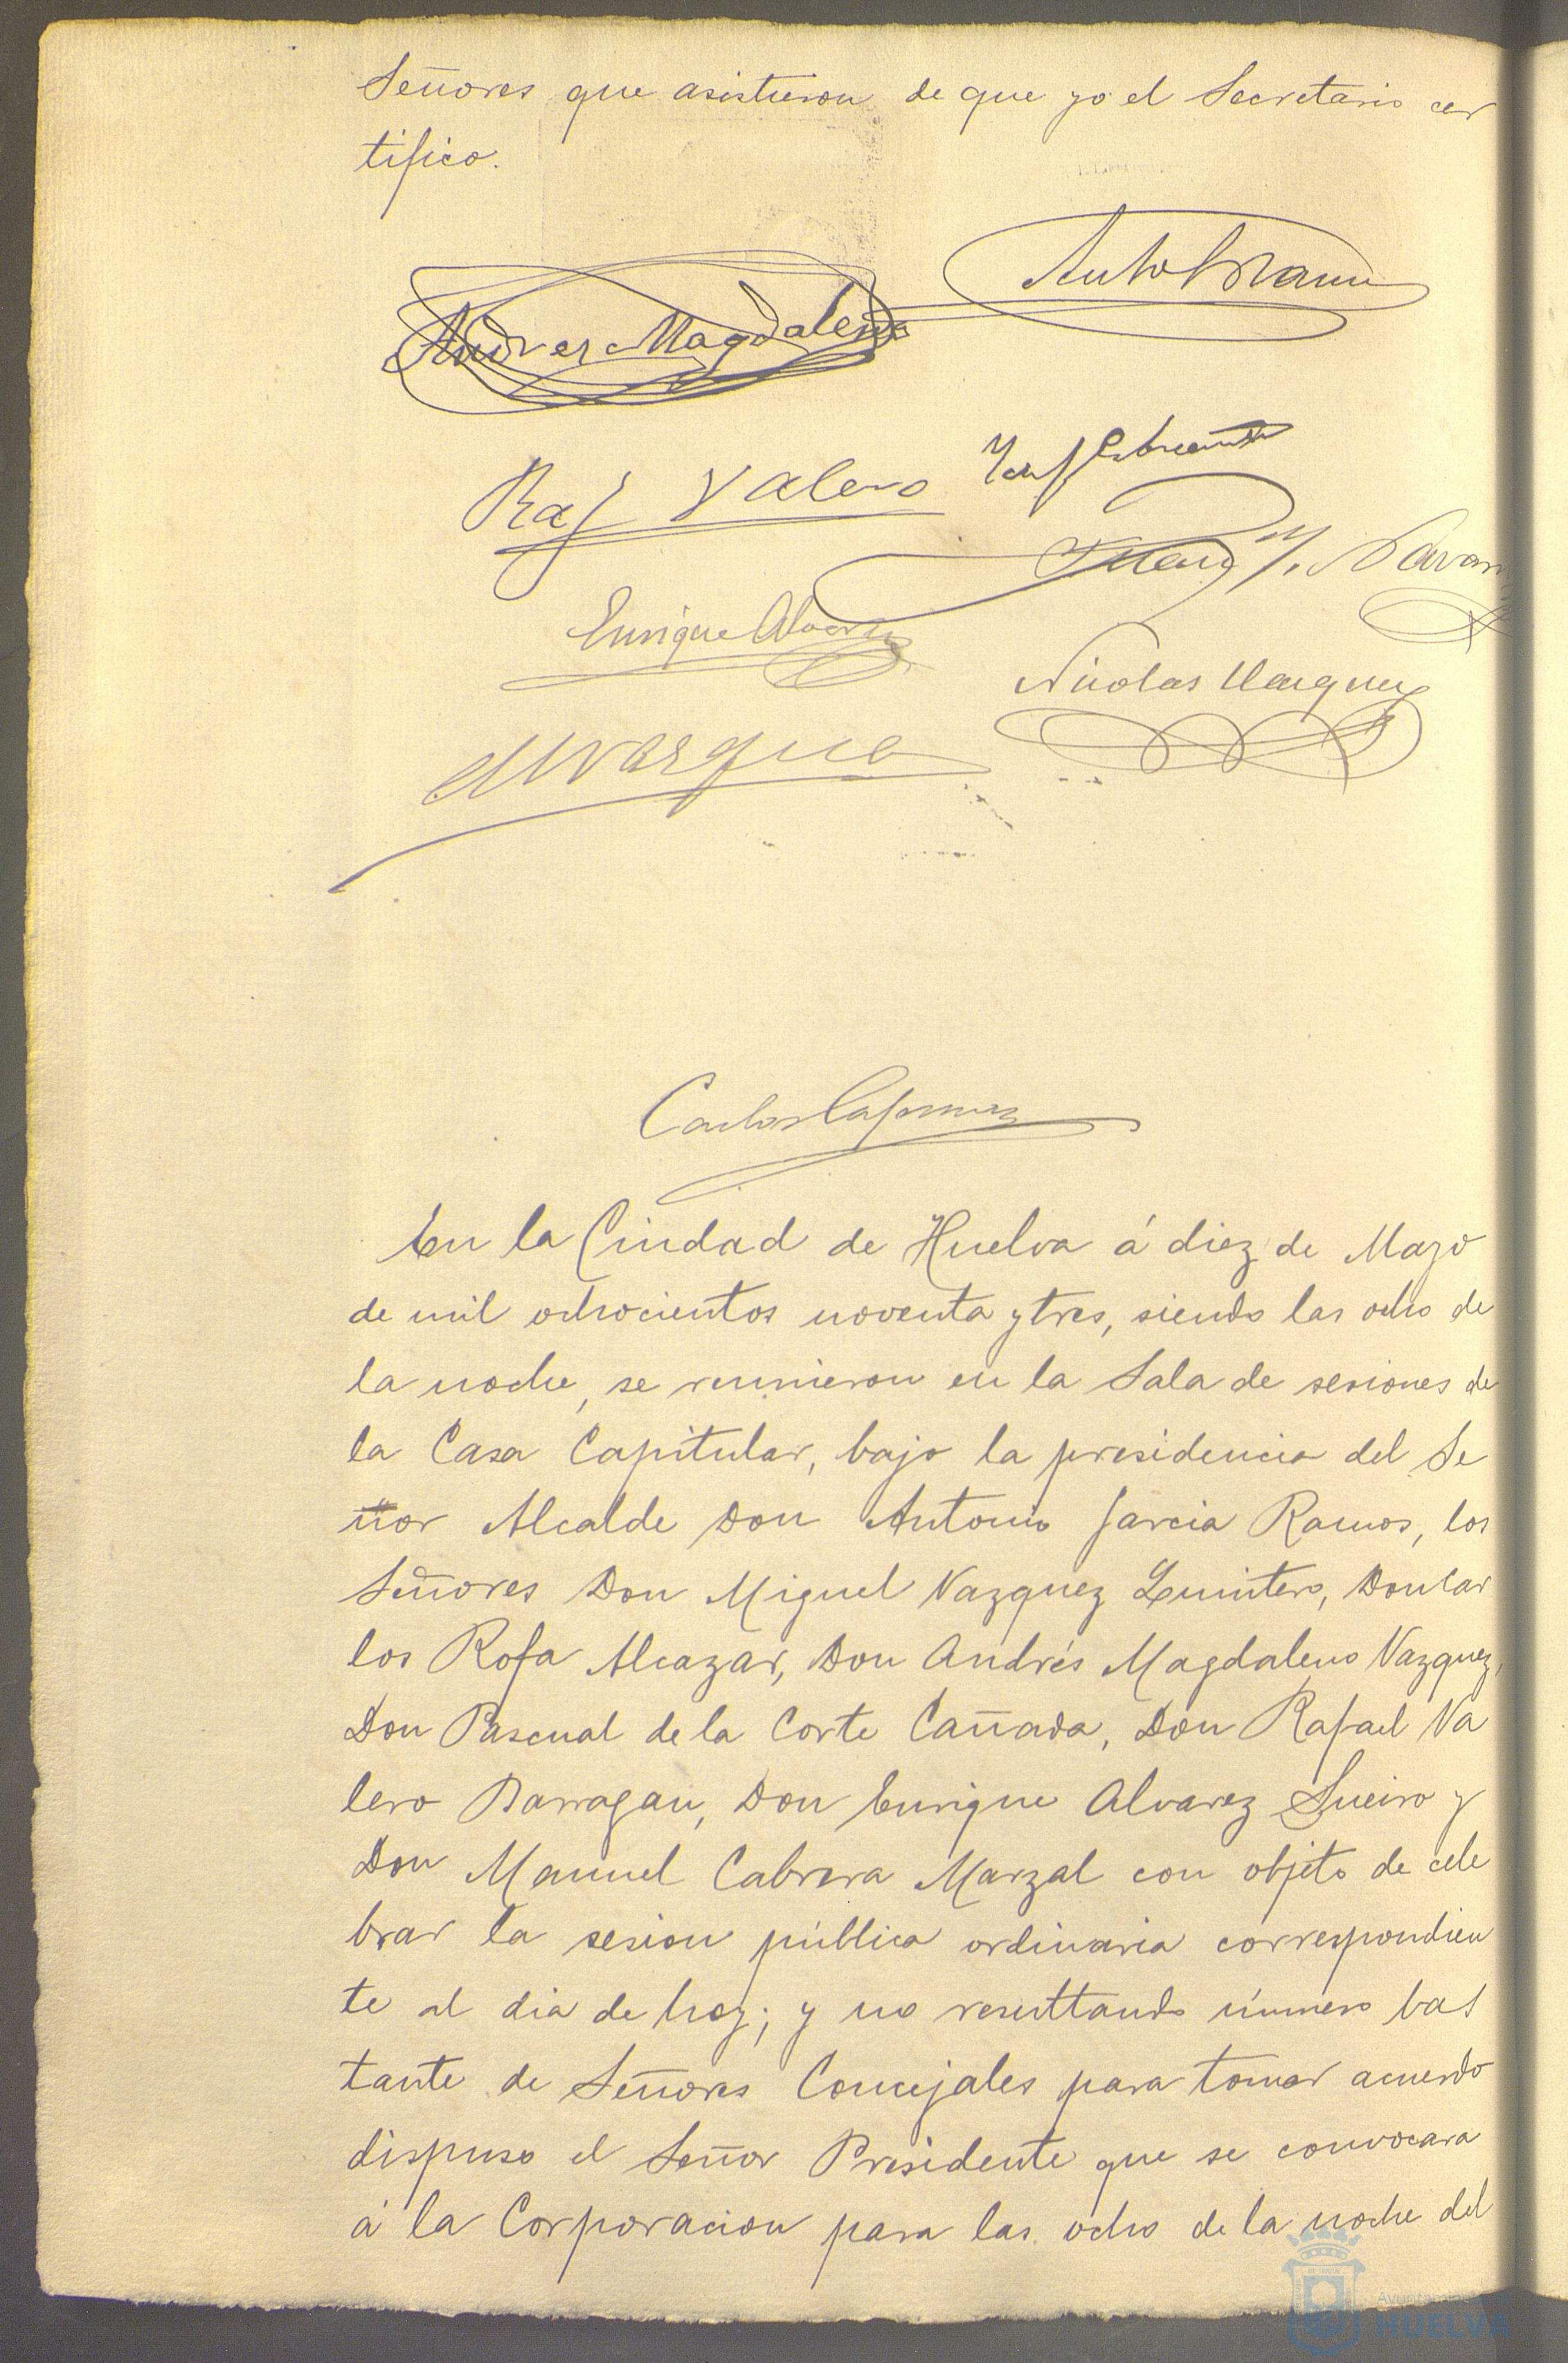 Señores que asistieron de que yo el Secretario cer
tifico.
Andres Magdaleno
Raf Valero
Enrique Alvarez
Nicolas Vazquez
MVazquez
Carlos
En la Ciudad de Huelva á diez de Mayo
de mil ochocientos noventa y tres, siendo las ocho de
la noche, se reunieron en la Sala de sesiones de
la Casa Capitular, bajo la presidencia del Se
ñor Alcalde Don Antonio Garcia Ramos, los
Señores Don Miguel Vazquez Quintero, Don Car
los Rofa Alcazar, Don Andrés Magdaleno Vazquez,
Don Pascual de la Corte Cañada, Don Rafael Va
lero Barragan, Don Enrique Alvarez Sueiro y
Don Manuel Cabrera Marzal con objeto de cele
brar la sesion pública ordinaria correspondien
te al dia de hoy; y no resultando número bas
tante de Señores Concejales para tomar acuerdo
dispuso el Señor Presidente que se convocara
á la Corporacion para las ocho de la noche del
HUELVA